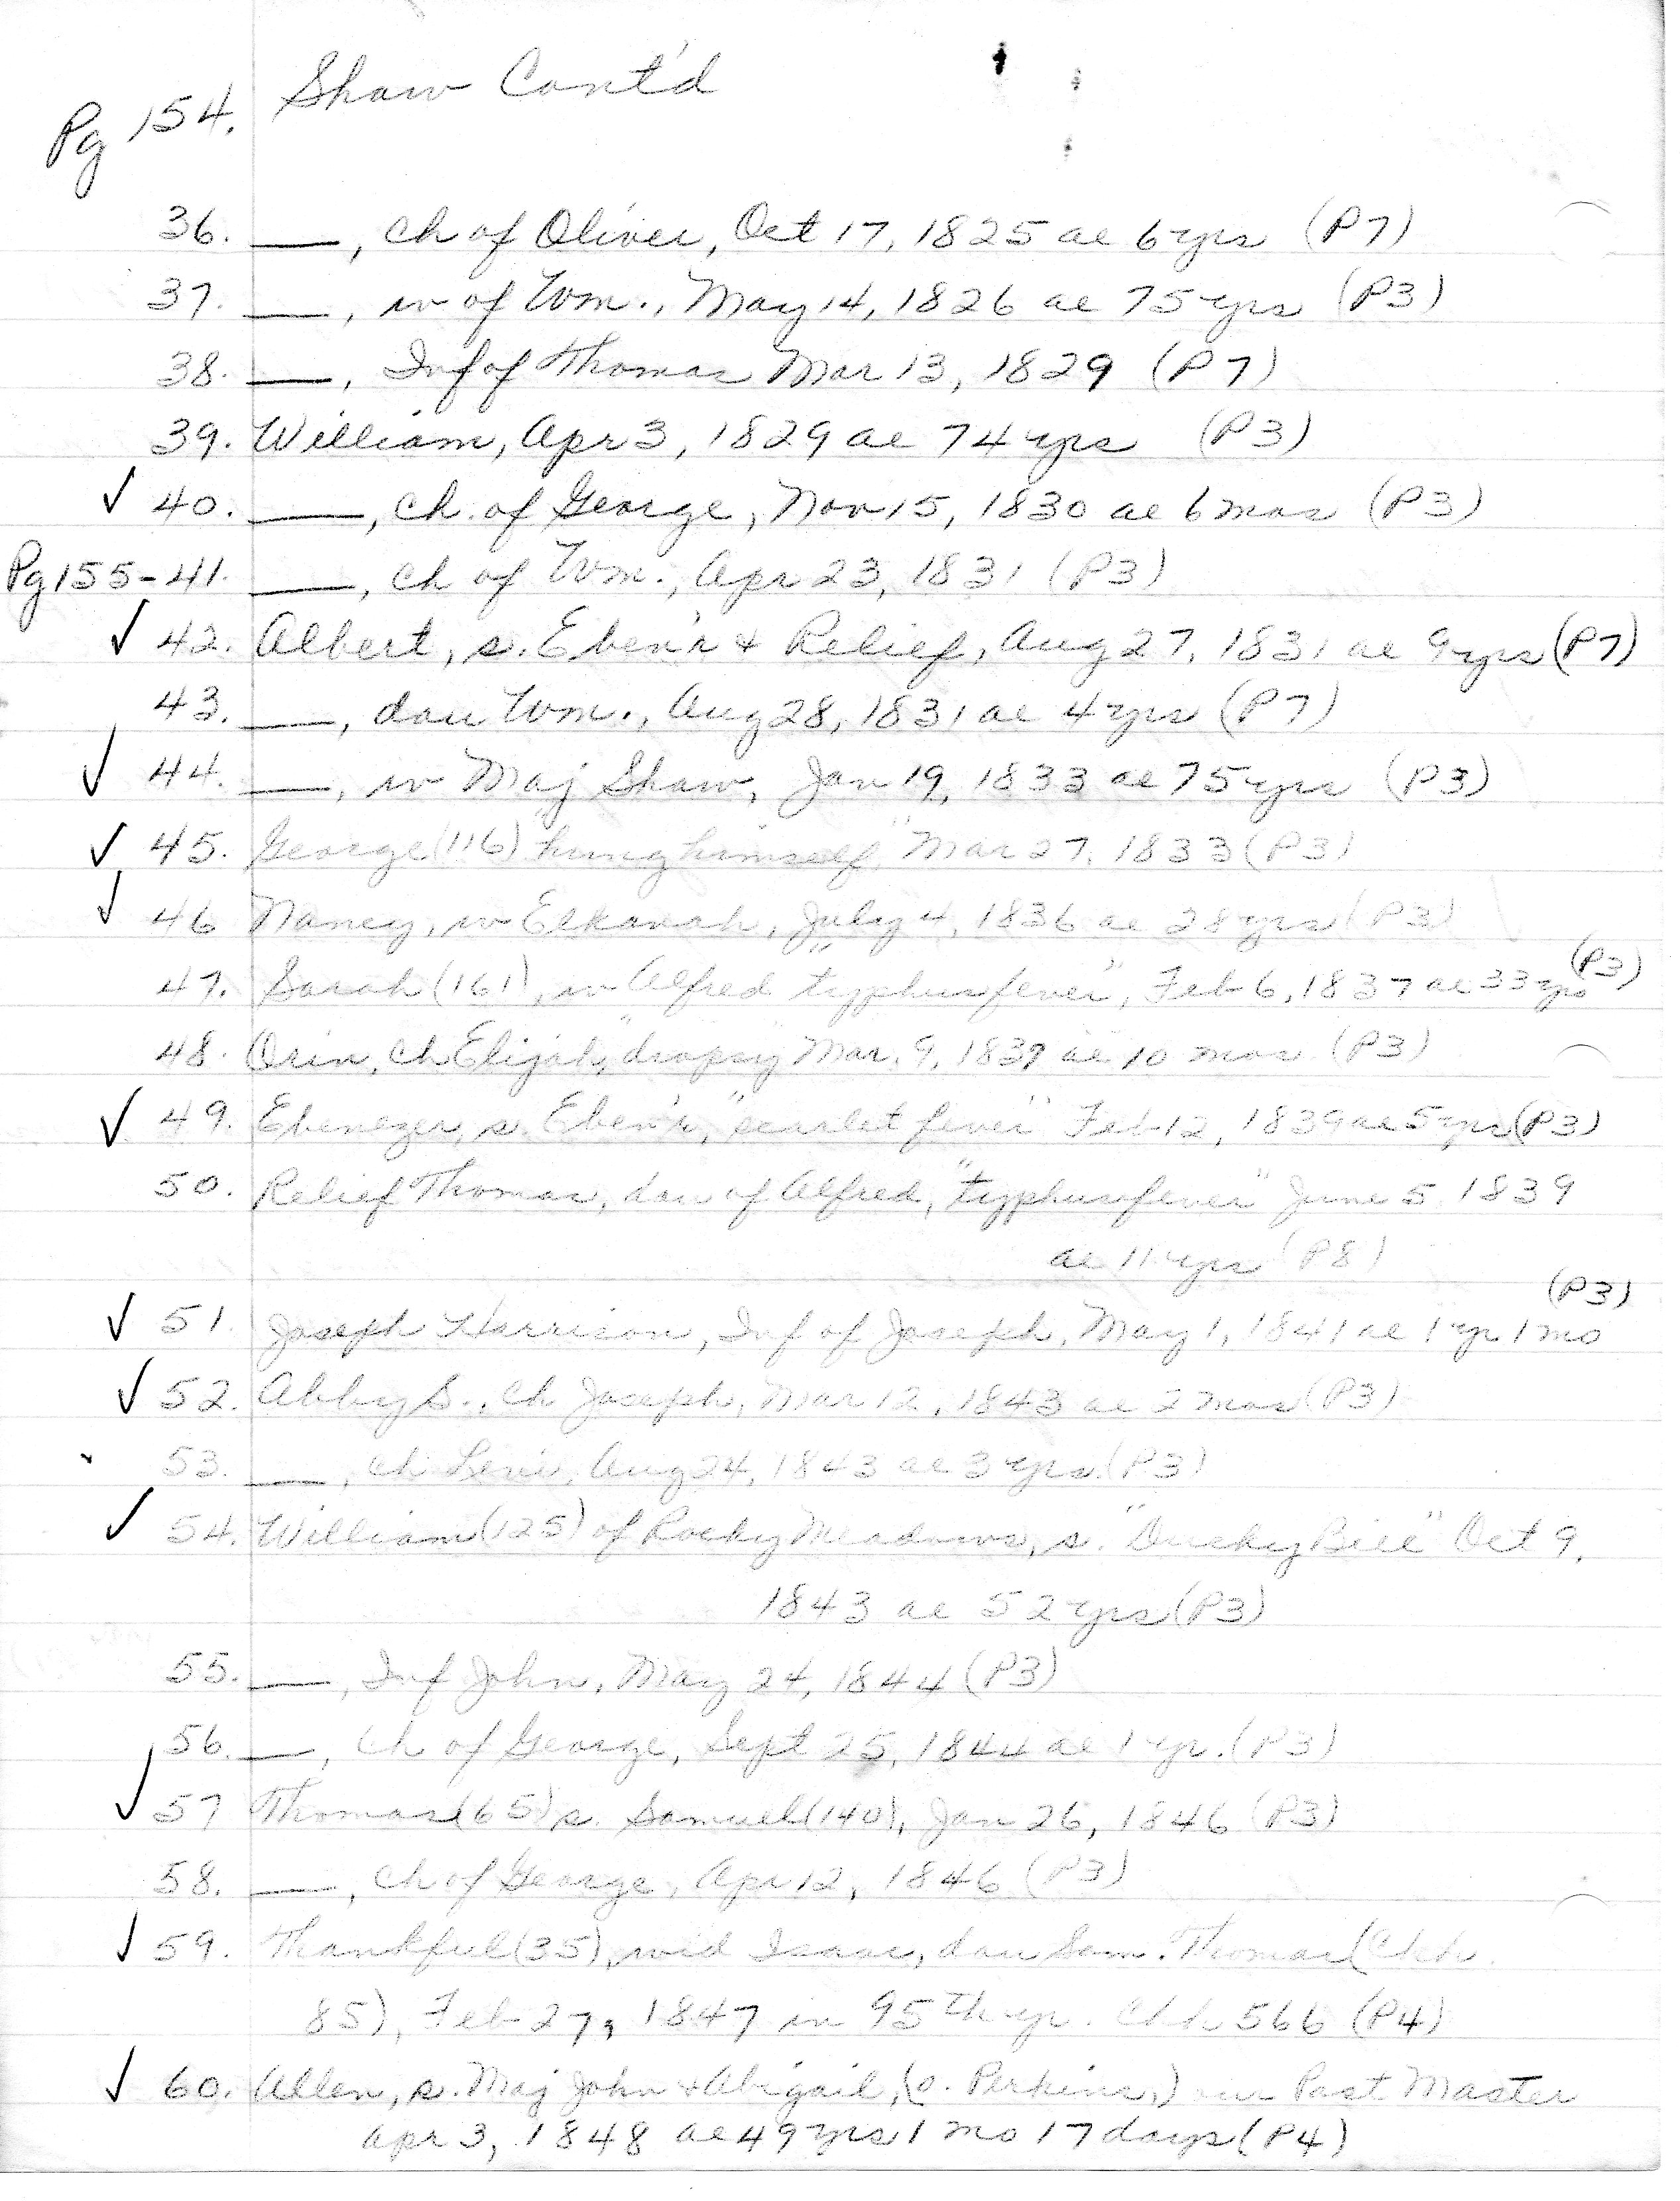 Shaw Cont'd
Pg 154.
36. —, ch of Oliver, Oct 17, 1825 ae 6 yrs (P7)
37. —, w of Wm., May 14, 1826 ae 75 yrs (P3)
38. —, Inf of Thomas Mar 13, 1829 (P7)
39. William, Apr 3, 1829 ae 74 yrs (P3)
✓ 40. —, ch. of George, Nov 15, 1830 ae 6 mos (P3)
Pg 155-41. —, ch of Wm., Apr 23, 1831 (P3)
✓ 42. Albert, s. Eben'r & Relief, Aug 27, 1831 ae 9 yrs (P7)
43. —, dau Wm., Aug 28, 1831 ae 4 yrs (P7)
✓ 44. —, w Maj Shaw, Jan 19, 1833 ae 75 yrs (P3)
✓ 45. George (116) "hung himself" Mar 27, 1833 (P3)
✓ 46 Nancy, w Elkanah, July 4, 1836 ae 28 yrs (P3)
47. Sarah (161), w Alfred "typhus fever", Feb 6, 1837 ae 33 yrs (P3)
48. Orin, ch Elijah, "dropsy" Mar. 9, 1839 ae 10 mos (P3)
✓ 49. Ebenezer, s. Eben'r, "scarlet fever" Feb 12, 1839 ae 5 yrs (P3)
50. Relief Thomas, dau of Alfred, "typhus fever" June 5 1839
ae 11 yrs (P8)
✓ 51. Joseph Harrison, Inf of Joseph, May 1, 1841 ae 1 yr 1 mo (P3)
✓ 52. Abby S., ch Joseph, Mar 12, 1843 ae 2 mos (P3)
53. —, ch Levi, Aug 24, 1843 ae 3 yrs. (P3)
✓ 54. William (125) of Rocky Meadows, s. "Ducky Bill" Oct 9,
1843 ae 52 yrs (P3)
55. —, Inf John, May 24, 1844 (P3)
56. —, ch of George, Sept 25, 1844 ae 1 yr. (P3)
✓ 57 Thomas (65) s. Samuel (140), Jan 26, 1846 (P3)
58. —, ch of George, Apr 12, 1846 (P3)
✓ 59. Thankful (35), wid Isaac, dau Sam. Thomas (Chh
85), Feb 27, 1847 in 95th yr. Chh 566 (P4)
✓ 60. Allen, s. Maj John & Abigail, (o. Perkins,) Post Master
Apr 3, 1848 ae 49 yrs 1 mo 17 days (P4)